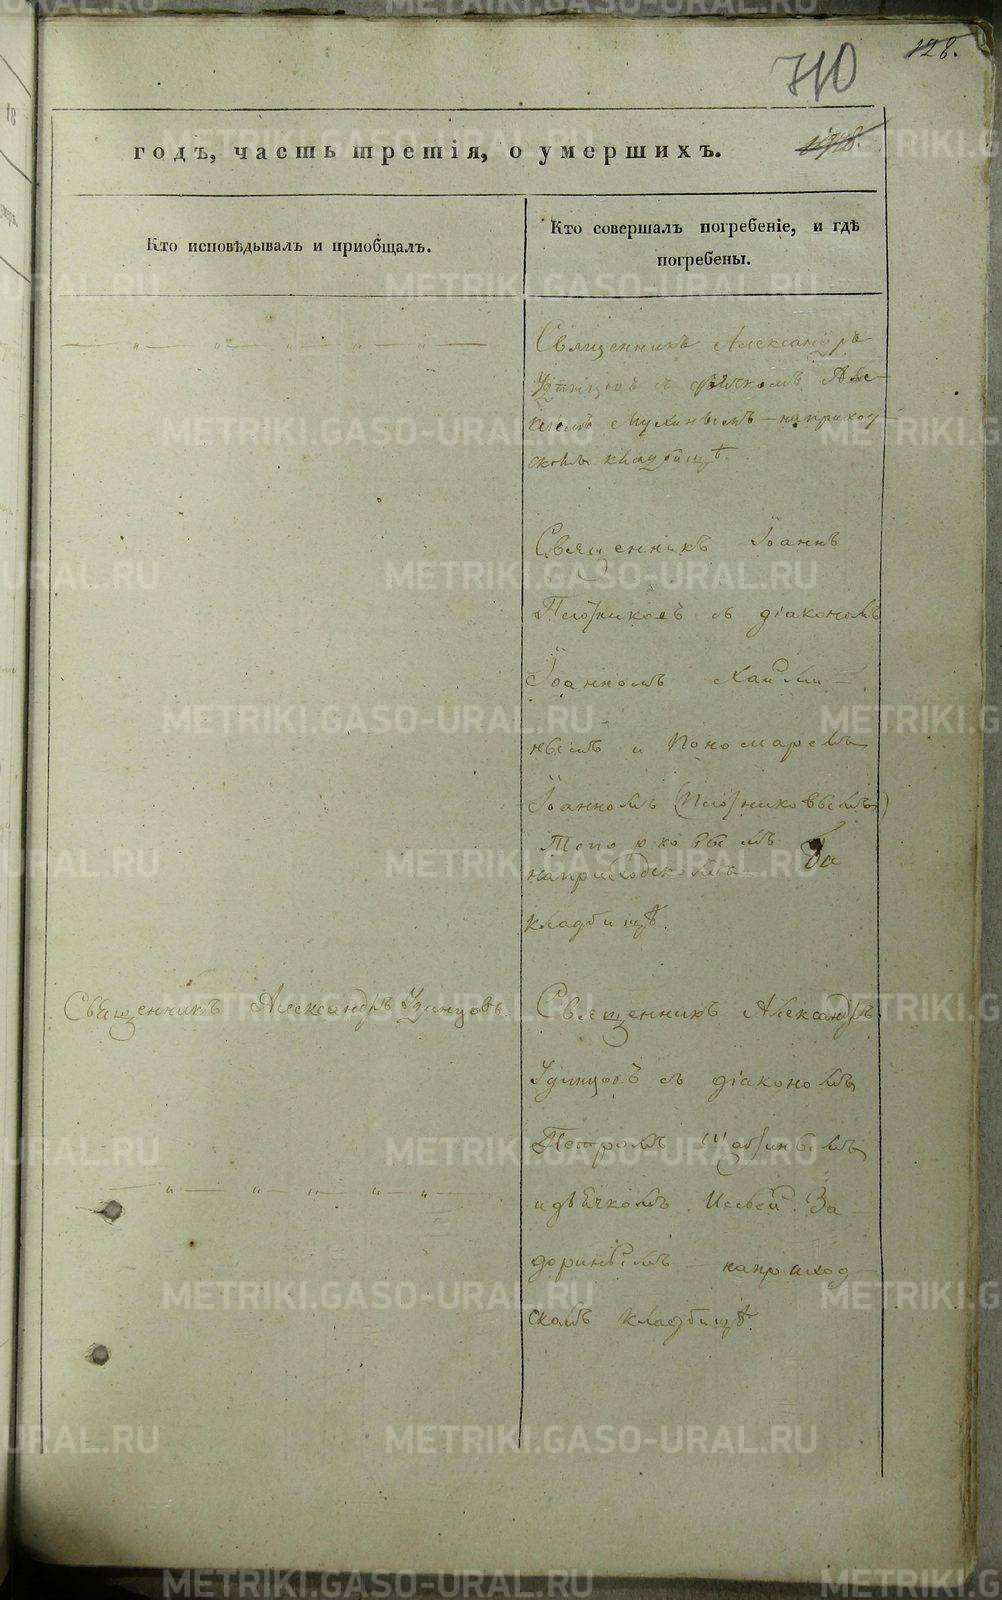 128.
710
годъ, часть третія, о умершихъ.
Кто исповѣдывалъ и приобщалъ.
Кто совершалъ погребеніе, и гдѣ
погребены.
Священникъ Александръ
Удинцовъ с дьячкомъ Але-
Мухинымъ на приход-
скомъ кладбищѣ.
Священникъ Іоаннъ
съ діакономъ
Іоанномъ
нымъ и пономаремъ
Іоанномъ
на приходскомъ
кладбищѣ.
Священникъ Александръ Удинцовъ.
Священникъ Александръ
Удинцовъ съ діакономъ
Петромъ
и дьячкомъ За-
доринымъ на приход-
скомъ кладбищѣ.
METRIKI.GASO-URAL.RU